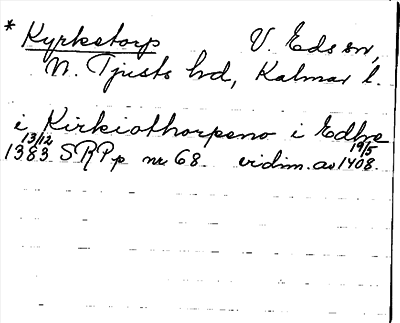 * Kyrketorp V. Eds sn,
N. Tjusts hd, Kalmar l.
i Kirkiothorpeno i Edhe
13/12 19/5
1383 SRPp nr 68. vidim. av 1408.